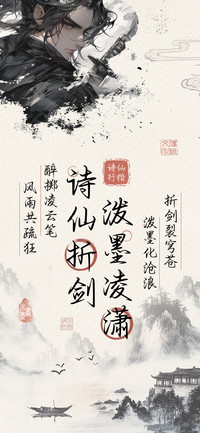 诗仙
行楷
折剑裂穹苍
泼墨化沧浪
泼墨凌潇
诗仙折剑
醉掷凌云笔
风雨共疏狂